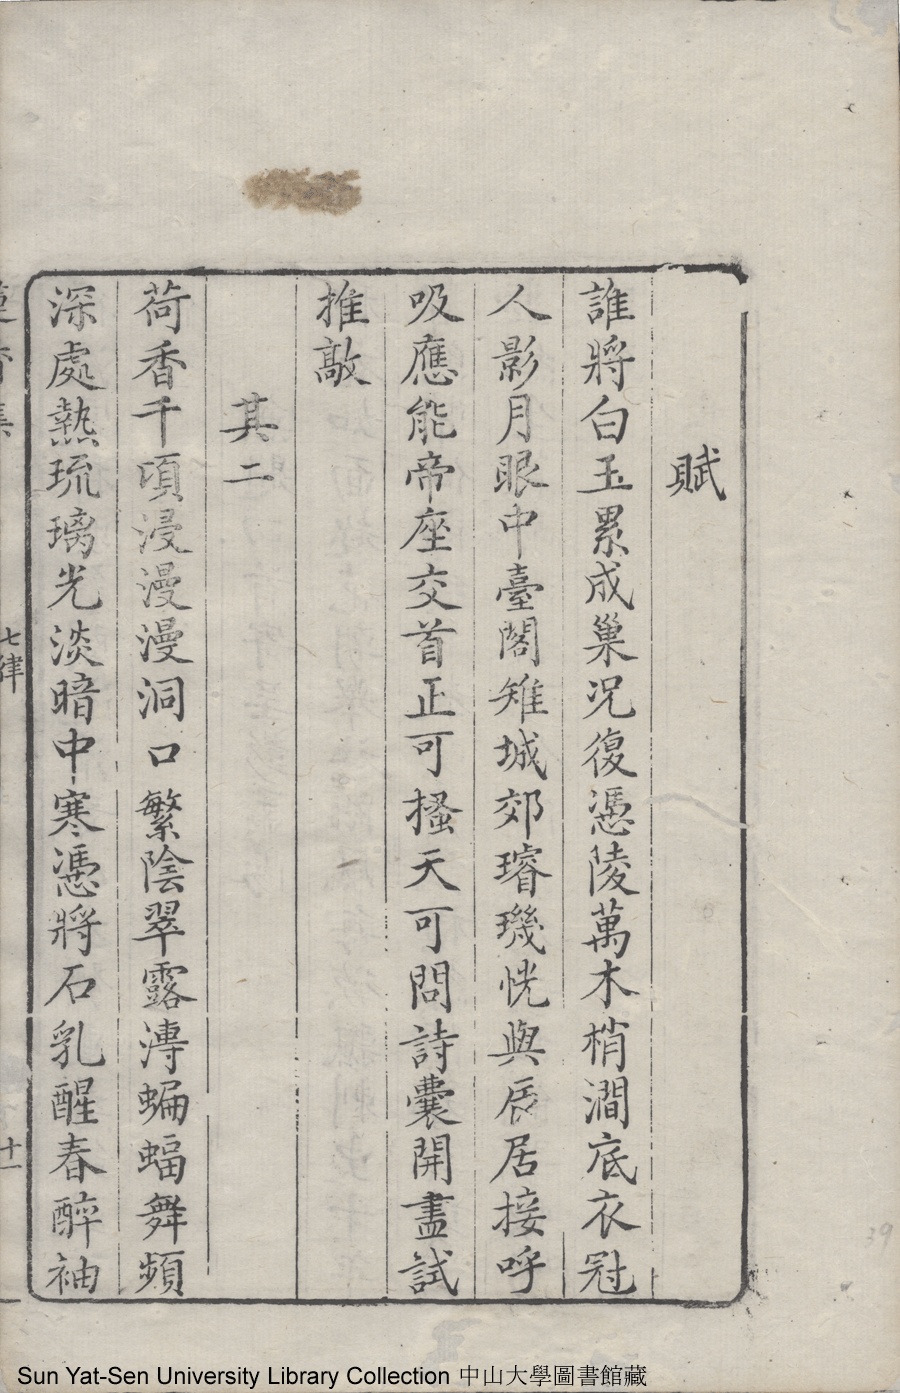 賦
誰將白玉累成巢况復憑陵萬木梢澗底衣冠
人影月眼中臺閣雉城郊璿璣恍與辰居接呼
吸應能帝座交首正可搔天可問詩囊開盡試
推敲
其二
荷香千頃浸漫漫洞口繁陰翠露漙蝙蝠舞頻
深處熱琉璃光淡暗中寒憑將石乳醒春醉袖
七律
十一
39
Sun Yat-Sen University Library Collection 中山大學圖書館藏